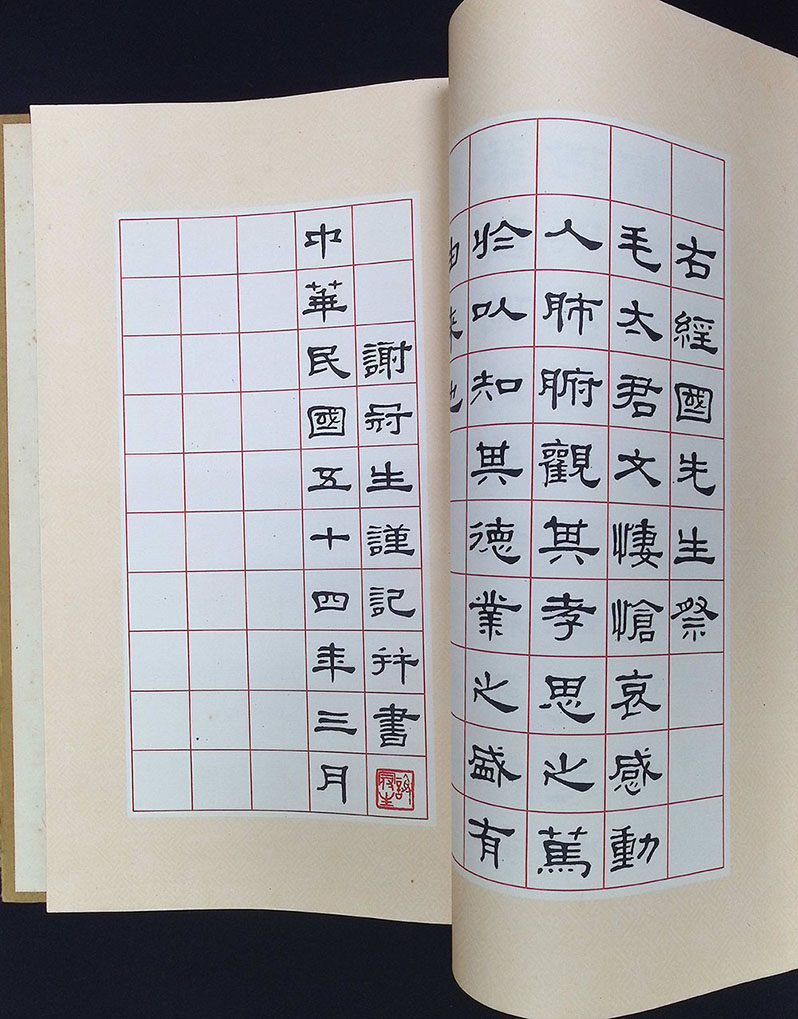 右經國先生祭
毛太君文悽愴哀感動
人肺腑觀其孝思之篤
於以知其德業之盛有
由來也
謝冠生謹記并書
謝冠生
中華民國五十四年三月